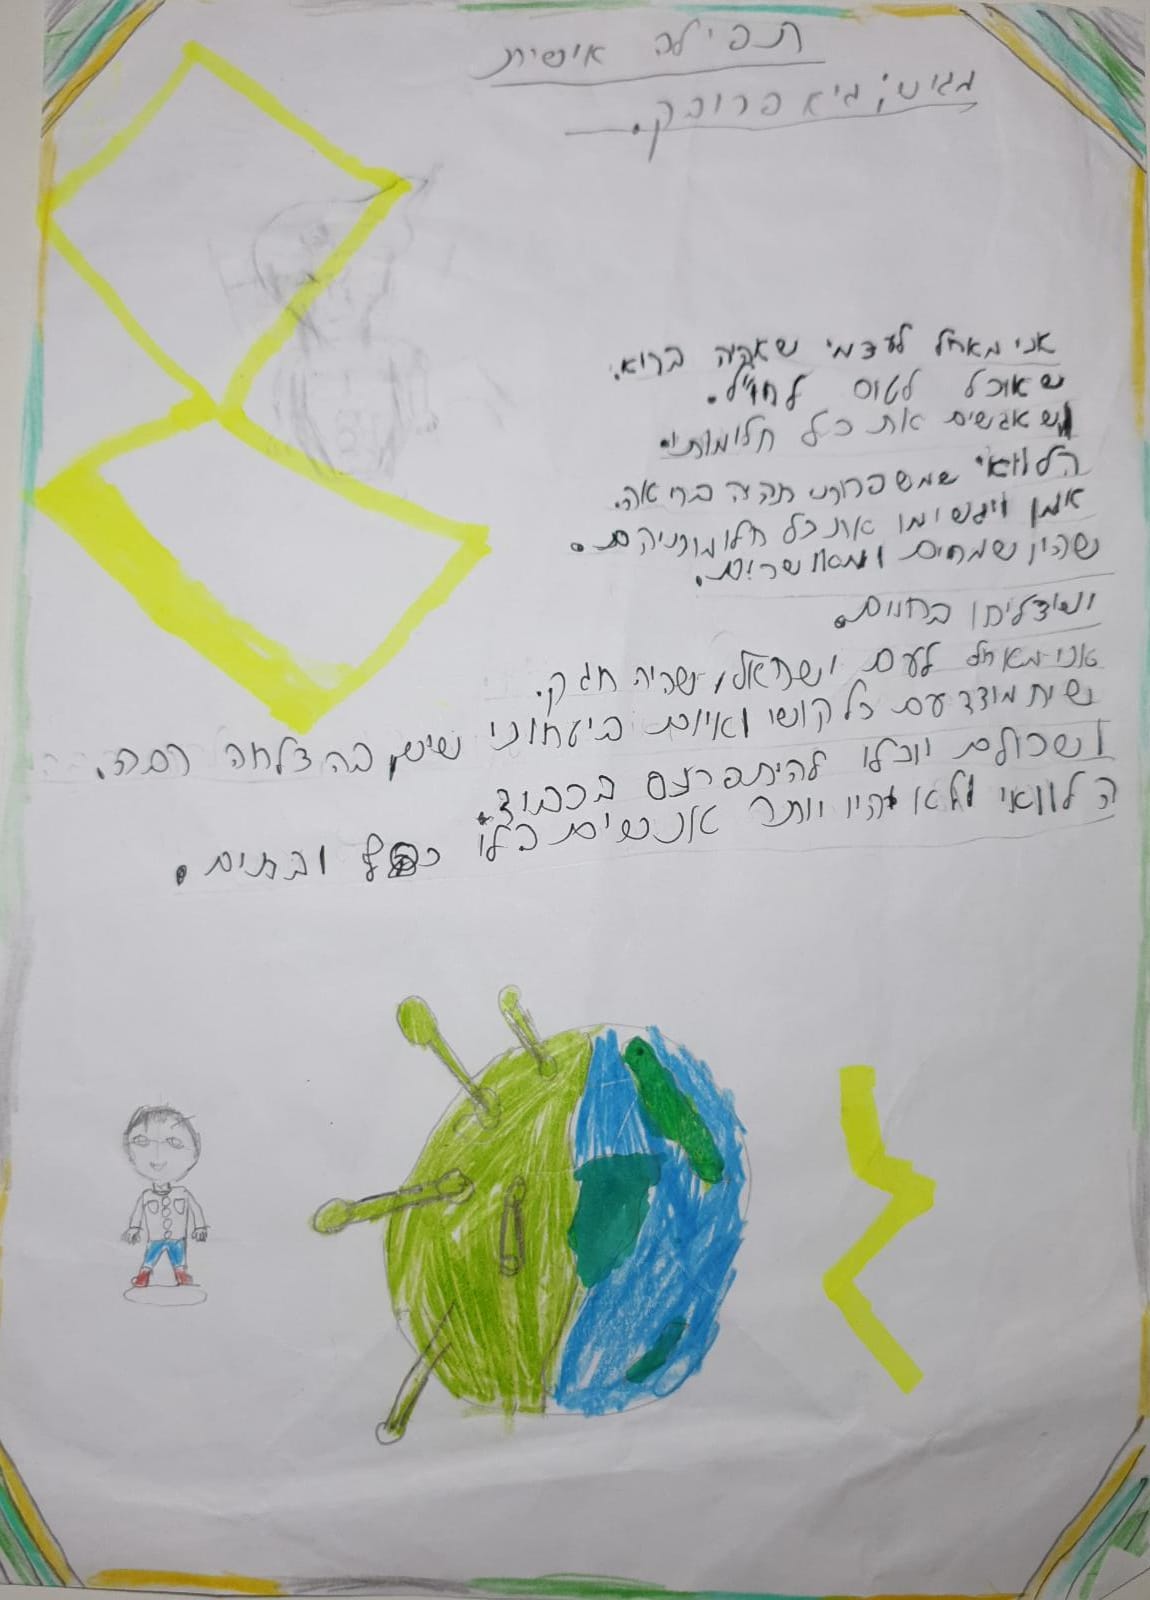 תפילה אישית
מגיש: גיא פרובק.
אני מאחל לעצמי שאהיה בריא.
שאוכל לטוס לחו"ל.
שאגשים את כל חלומותי.
הלוואי שמשפחתי תהיה בריאה.
אמן ויגשימו את כל חלומותיהם.
שהיו שמחים ומאושרים.
ושצליחו בחיים.
אני מאחל לעם ישראל, שהיה חזק.
שיתמודד עם כל קושי ואיום ביטחוני שישנן בהצלחה רבה.
ושכולם יוכלו להיתפרנס בכבוד.
הלוואי ולא יהיו יותר אנשים בלי ובתים.